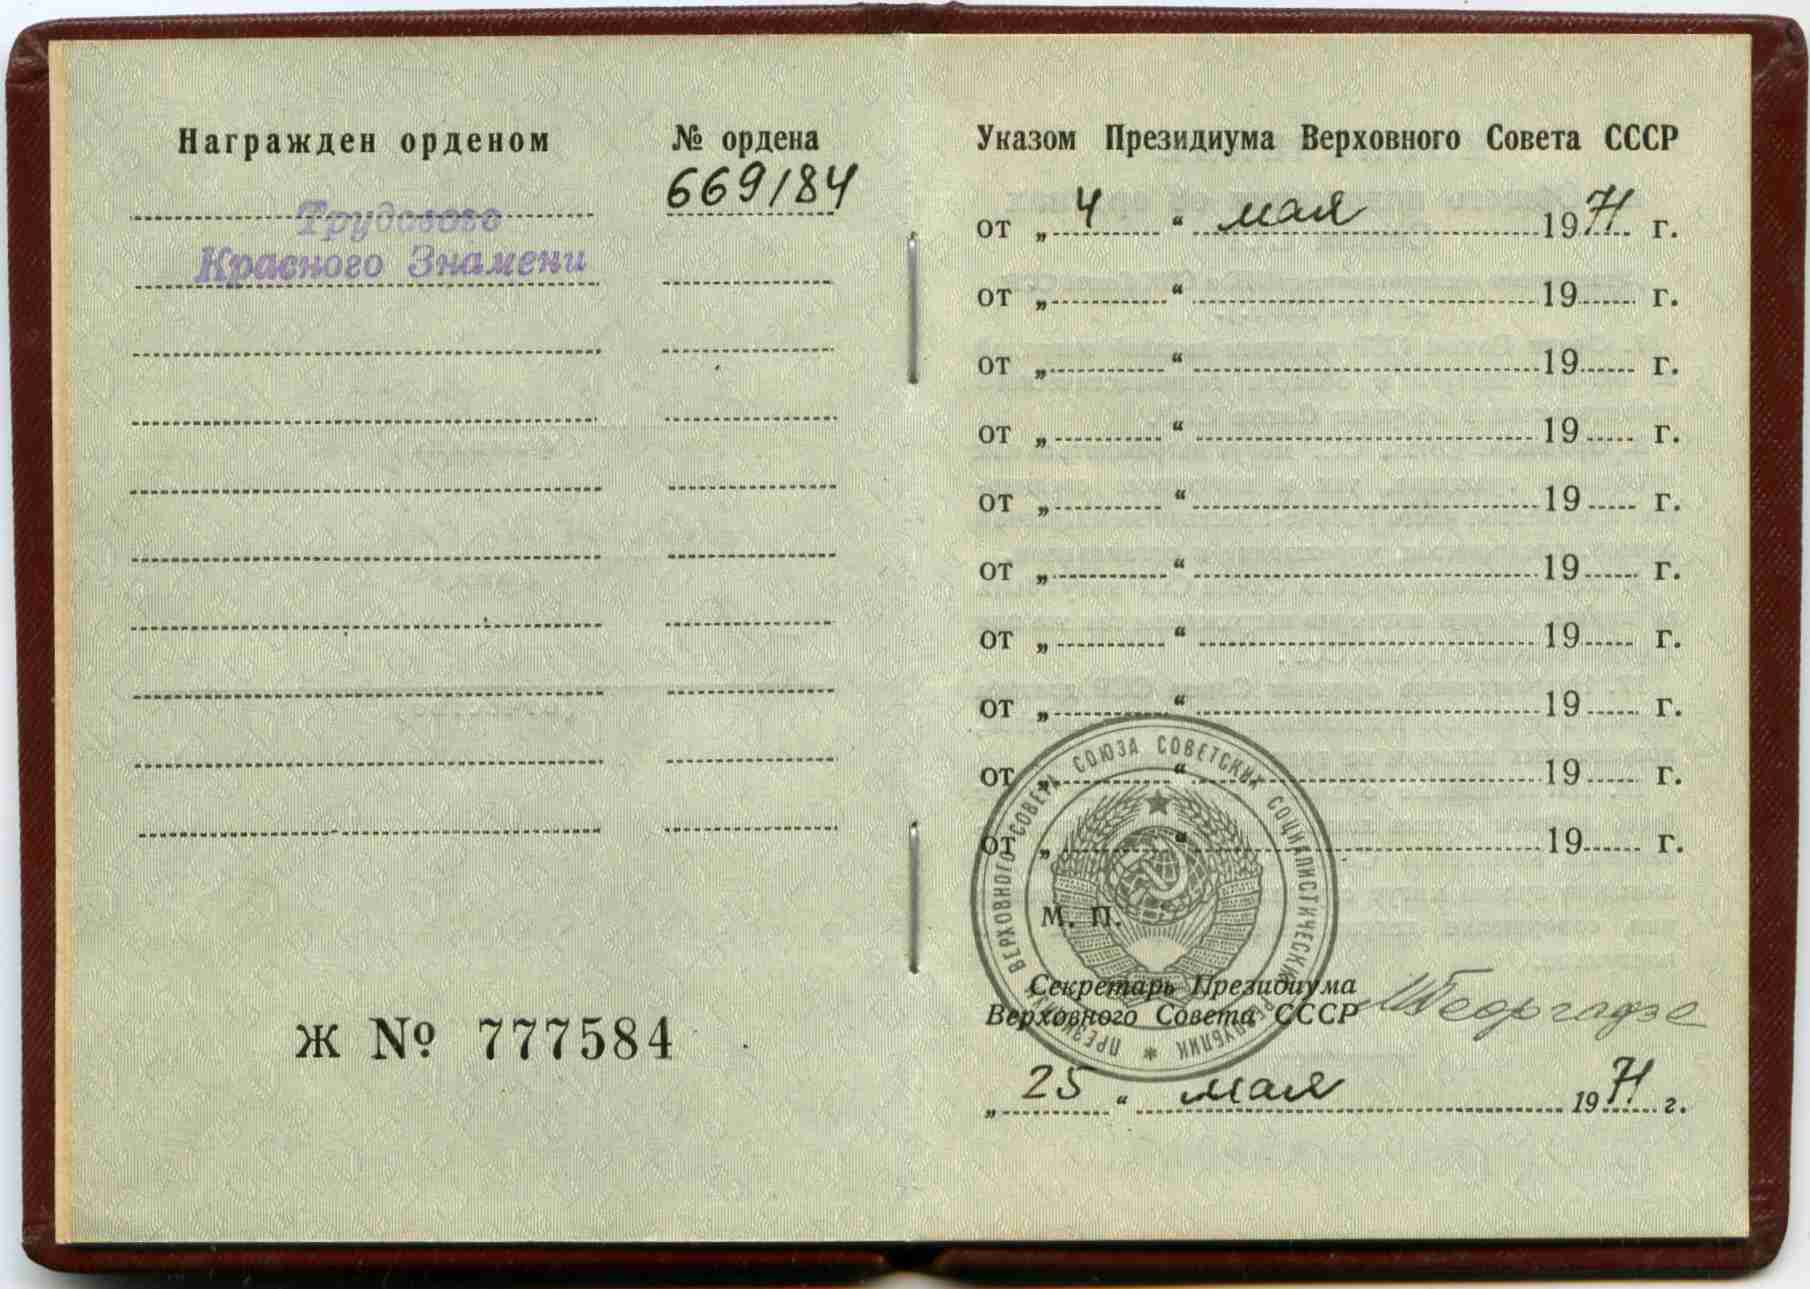 Награжден орденом
№ ордена
669184
Трудового
Красного Знамени
Ж № 777584
Указом Президиума Верховного Совета СССР
от „ 4 “ мая 1971 г.
от „ “ 19 г.
от „ “ 19 г.
от „ “ 19 г.
от „ “ 19 г.
от „ “ 19 г.
от „ “ 19 г.
от „ “ 19 г.
от „ “ 19 г.
от „ “ 19 г.
ПРЕЗИДИУМ ВЕРХОВНОГО СОВЕТА СОЮЗА СОВЕТСКИХ СОЦИАЛИСТИЧЕСКИХ РЕСПУБЛИК
М. П.
Секретарь Президиума
Верховного Совета СССР
МГеоргадзе
„ 25 “ мая 1971 г.